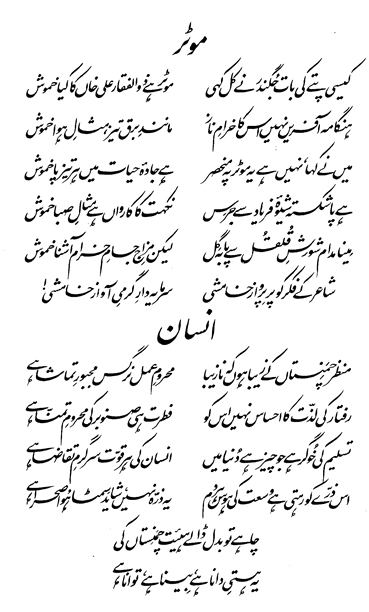 موٹر
کیسی پتے کی بات جگندر نے کل کہی موٹر ہے ذوالفقار علی خاں کا کیا خموش
ہنگامہ آفریں نہیں اس کا خرامِ ناز مانندِ برق تیز مثالِ ہوا خموش
میں نے کہا نہیں ہے یہ موٹر پہ منحصر ہے جادۂ حیات میں ہر تیزپا خموش
ہے پا شکستہ شیوۂ فریاد سے جرس نکہت کا کارواں ہے مثالِ صبا خموش
مینا مدام شورشِ قلقل سے پا بہ گل لیکن مزاجِ جامِ خرام آشنا خموش
شاعر کے فکر کو پرِ پرواز خامشی سرمایہ دارِ گرمیِ آواز خامشی!
انسان
منظر چمنستاں کے زیبا ہوں کہ نازیبا محرومِ عمل نرگس مجبورِ تماشا ہے
رفتار کی لذت کا احساس نہیں اس کو فطرت ہی صنوبر کی محرومِ تمنا ہے
تسلیم کی خوگر ہے جو چیز ہے دنیا میں انسان کی ہر قوت سرگرمِ تقاضا ہے
اس ذرے کو رہتی ہے وسعت کی ہوس ہر دم یہ ذرہ نہیں، شاید سمٹا ہوا صحرا ہے
چاہے تو بدل ڈالے ہیئت چمنستاں کی
یہ ہستیِ دانا ہے بینا ہے توانا ہے